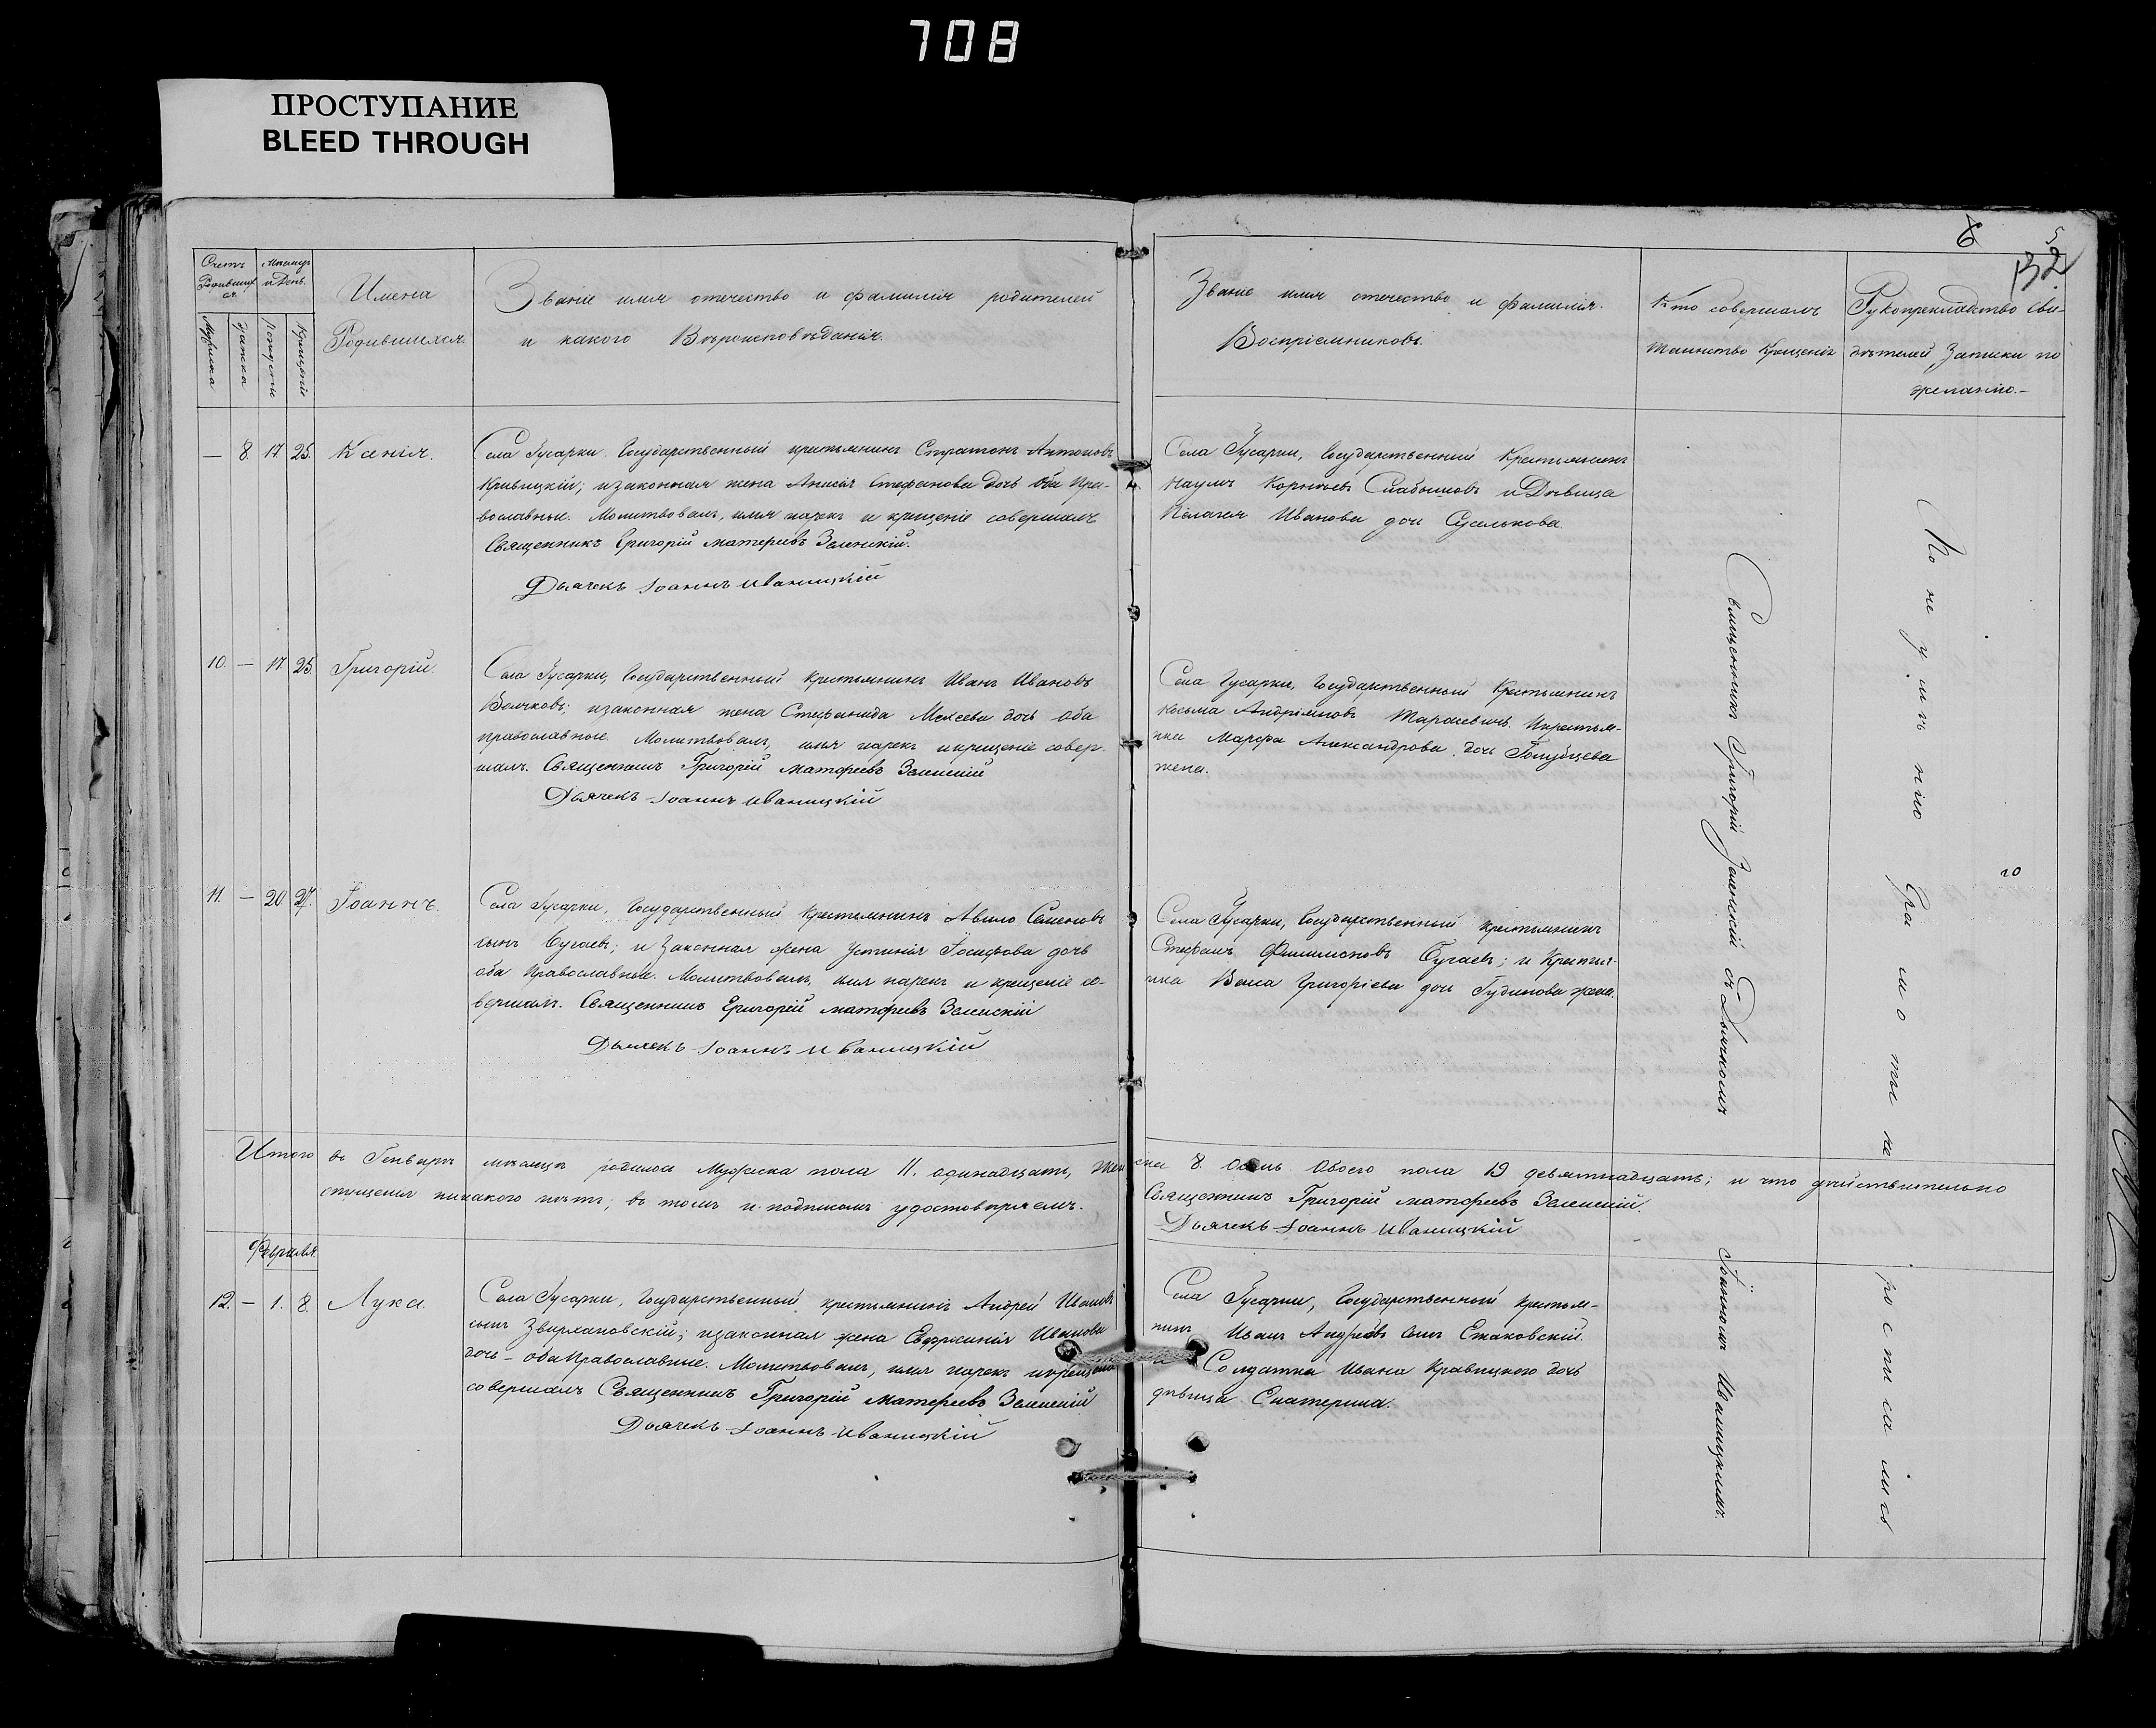 708
ПРОСТУПАНИЕ
BLEED THROUGH
6
5
132
Счетъ Родившихся.
Мужска
Женска
Месяцъ и День.
Рожденія
Крещенія
Имена
Родившихся.
Званіе имя отечество и фамилія родителей
и какого Вѣроисповѣданія.
Званіе имя отечество и фамилія.
Воспріемниковъ.
Кто совершалъ
таинство Крещенія
Рукоприкладство сви-
дѣтелей Записки по
желанію.-
— 8. 17. 25. Ксенія.
Села Гусарки Государственный крестьянинъ Стратонъ Антоновъ
Кривицкій; и законная жена Анисья Стефанова дочь оба пра-
вославные. Молитвовалъ, имя нарекъ и крещеніе совершалъ
Священникъ Григорій Матфеевъ Зеленскій.
Дьячекъ Іоаннъ Иваницкій
Села Гусарки, Государственный Крестьянинъ
Наумъ Корнѣевъ и Дѣвица
Пелагея Иванова дочь Сусликова
10. — 17. 25. Григорій.
Села Гусарки, Государственный Крестьянинъ Иванъ Ивановъ
Волчковъ; и законная жена Стефанида Моисеева дочь оба
православные. Молитвовалъ, имя нарекъ и крещеніе совер-
шалъ. Священникъ Григорій Матфеевъ Зеленскій
Дьячекъ Іоаннъ Иваницкій
Села Гусарки, Государственный Крестьянинъ
Косьма Андріяновъ и крестьян-
ка Марфа Александрова дочь Голубцева
жена.
11. — 20. 27. Іоаннъ.
Села Гусарки, Государственный Крестьянинъ Авило Семеновъ
сынъ Бугаевъ; и Законная жена Устинія Іосифова дочь
оба Православные. Молитвовалъ, имя нарекъ и крещеніе со-
вершалъ. Священникъ Григорій Матфеевъ Зеленскій
Дьячекъ Іоаннъ Иваницкій
Села Гусарки, Государственный крестьянинъ
Стефанъ Филимоновъ Бугаевъ; и Крестья-
нка Васса Григоріева дочь Гудимова жена.
Итого въ Генварѣ мѣсяцѣ родилось Мужеска пола 11. одинадцать, Женска 8. Осмь Обоего пола 19 девятнадцать; и что дѣйствительно
опущенія никакого нѣтъ; въ томъ и подписомъ удостовѣряемъ. Священникъ Григорій Матфеевъ Зеленскій.
Дьячекъ Іоаннъ Иваницкій
Февраля
12. — 1. 8. Лука.
Села Гусарки, Государственный крестьянинъ Андрей Ивановъ
сынъ Звирхановскій; и законная жена Евфросинія Иванова
дочь - оба Православные. Молитвовалъ, имя нарекъ и крещеніе
совершалъ Священникъ Григорій Матфеевъ Зеленскій
Дьячекъ Іоаннъ Иваницкій
Села Гусарки, Государственный Крестья-
нинъ Иванъ Андреевъ сынъ Стаховскій.
и Солдатка Ивана Кравицкого дочь
дѣвица Екатерина.
Священникъ Григорій Зеленскій съ Дьячкомъ
Іоанномъ Иваницкимъ.
По не умѣнію Грамоты не
росписались